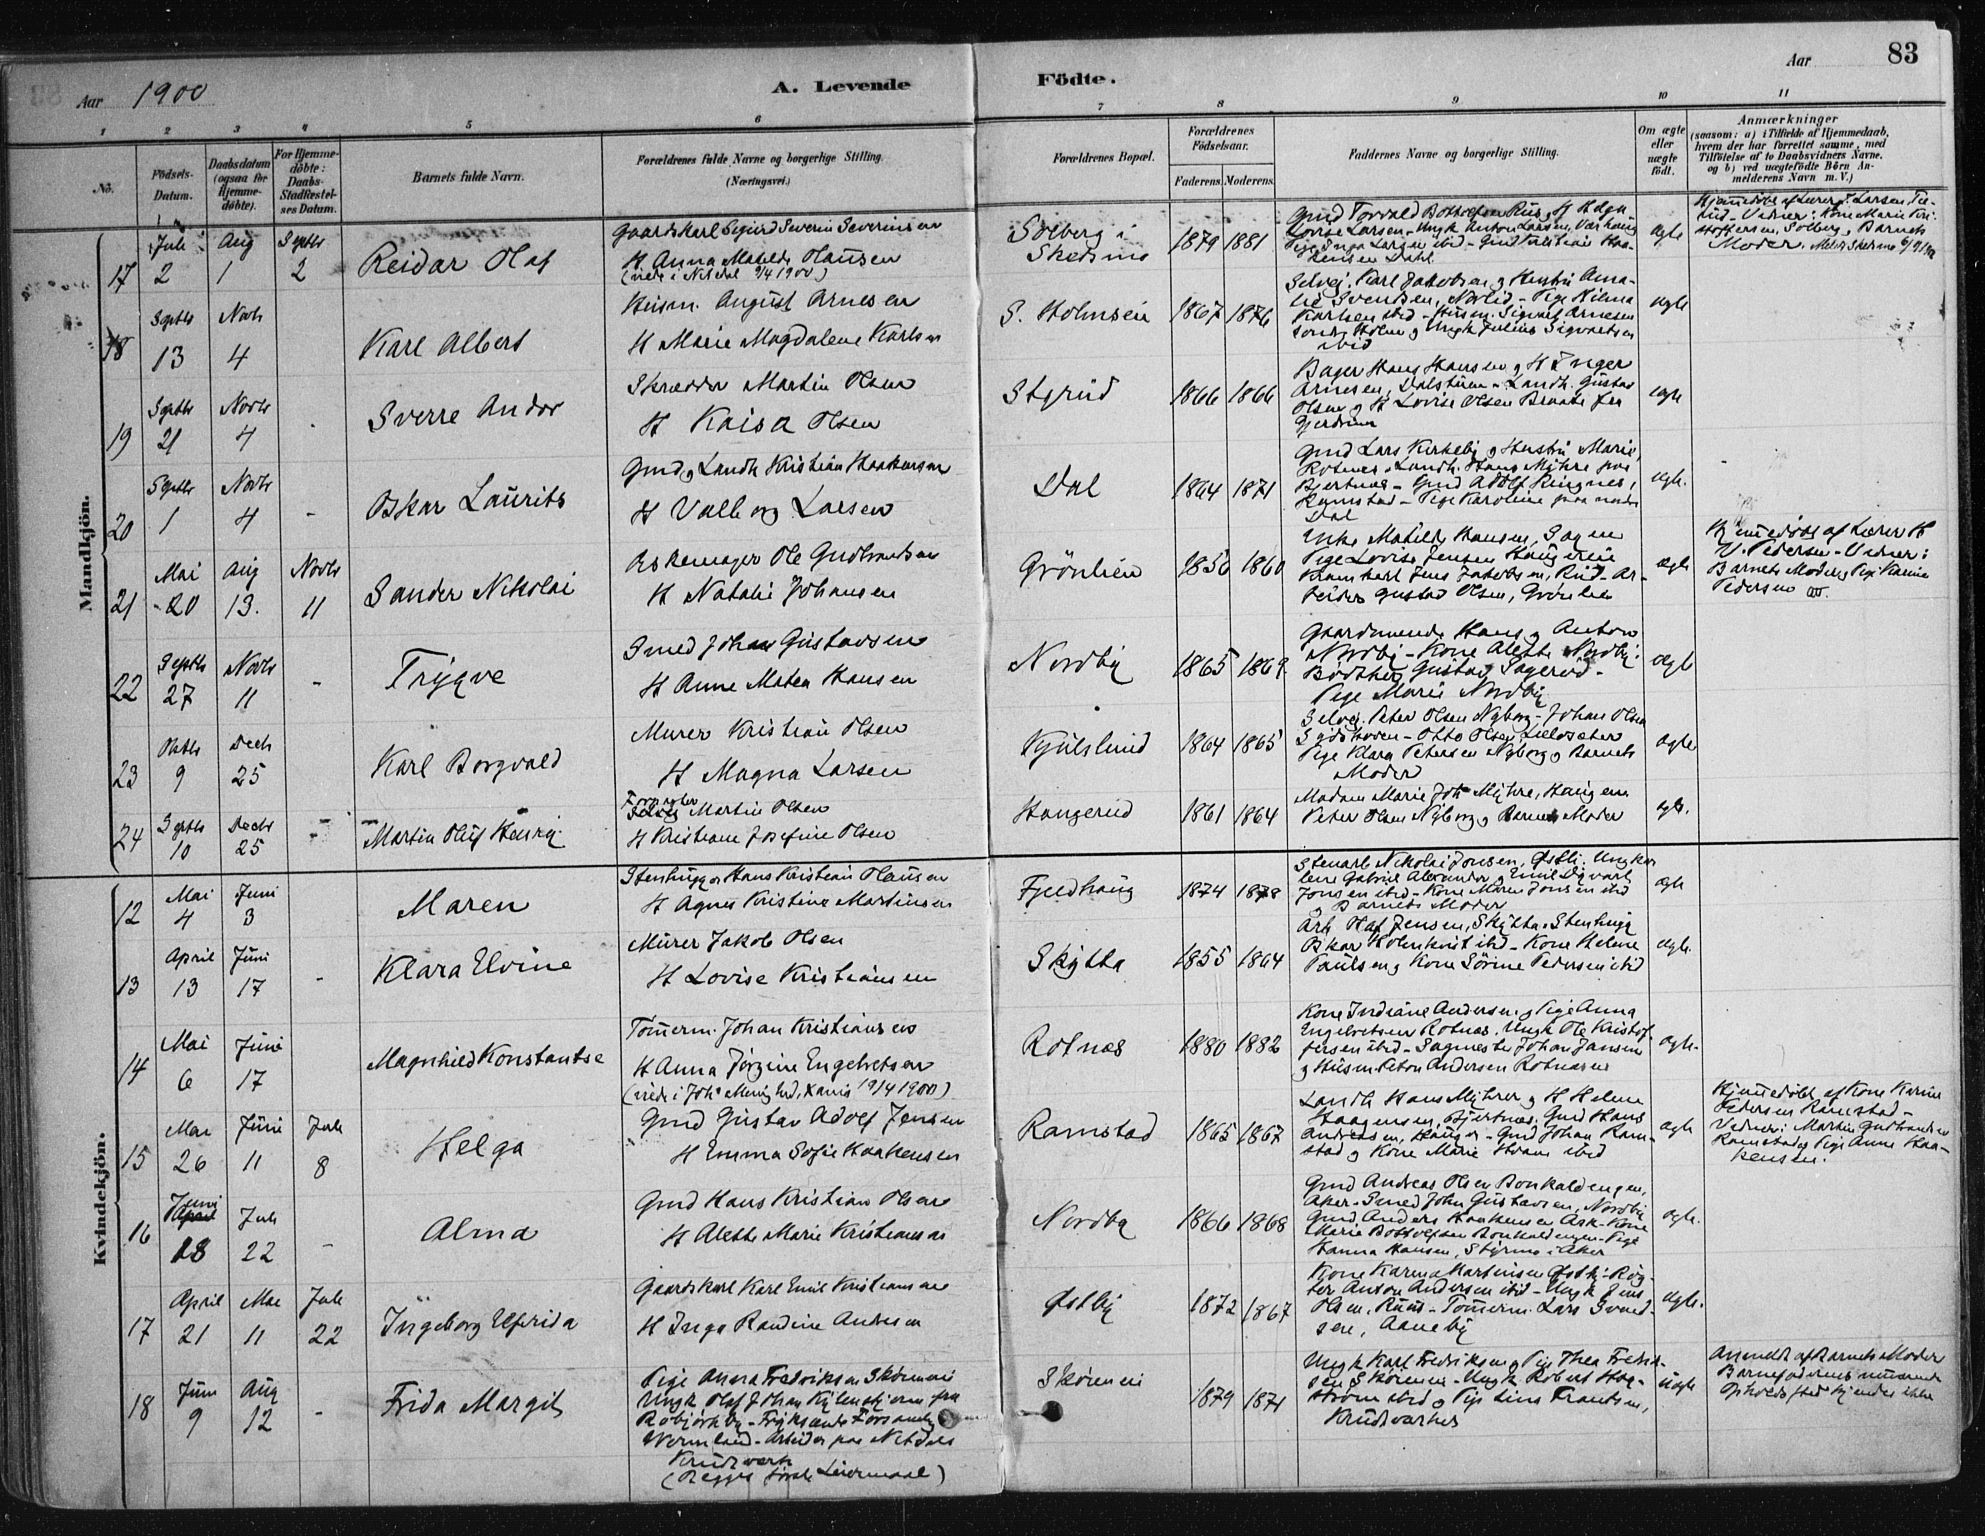 Aar 1900
A. Levende
Födte.
Aar
83
1 2 3 4 5 6 7 8 9 10 11
No.
Födsels-
Datum.
Daabsdatum
(ogsaa for
Hjemme-
döbte).
For Hjemme-
döbte:
Daabs-
Stadfæstel-
ses Datum.
Barnets fulde Navn.
Forældrenes fulde Navne og borgerlige Stilling.
(Næringsvei.)
Forældrenes Bopæl.
Forældrenes
Födselsaar.
Faderens. Moderens.
Faddernes Navne og borgerlige Stilling.
Om ægte
eller
uægte
födt.
Anmærkninger
(saasom: a) i Tilfælde af Hjemmedaab,
hvem der har forrettet samme, med
Tilföielse af to Daabsvidners Navne,
og b) ved uægtefödte Börn An-
melderens Navn m. V.)
Mandkjön.
17 Juli 2 Aug 1 Septb 2
Reidar Olaf
Gaardskarl Sigurd Severin Severinsen
H Anna Matilde Olausen
(viede i Nitedal 9/4 1900)
Solberg i
Skedsmo
1879 1881
Gmd Torvald Bottolfsen Ruis, H
Lovise Larsen - Ungk Anton Larsen,
Pige Inga Larsen ibid - Gmd Kristian Haa-
kensen Dahl
ægte
Hjemmedöbt af Lærer J. Larsen
Vidner: Kone Marie Kri-
stoffersen, Solberg, Barnets
Moder.
18 Septb 13 Novb 4
Karl Albert
Husm. August Arnesen
H Marie Magdalene Karlsen
S. Holmsen
1867 1876
Selvei. Karl Jakobsen og Hustru Ama-
lie Svendsen, - Pige Hilma
Karlsen ibid - Husm. Sigvart Arnesen
Holm og Ungk Julius Sigvartsen
ibid
ægte
19 Septb 21 Novb 4
Sverre Andor
Skrædder Martin Olsen
H Kaisa Olsen
Stgrud
1866 1866
Bager Hans Hansen og H Inger
Arnesen, Dalstuen - Landh. Gustav
Olsen og H Lovise Olsen Braate fra
Gjerdrum
ægte
20 Septb 1 Novb 4 -
Oskar Laurits
Gmd og Landh Kristian Haakensen
H Valborg Larsen
Dal
1864 1871
Gmd Lars Kirkeby og Hustru Marie,
Rotnes - Landh. Hans Myhre paa
Bjertnæs - Gmd Adolf Ringnes,
Ramstad - Pige Karoline paa nordre
Dal
ægte.
21 Mai 20 Aug 13. Novb 11
Sander Nikolai
Æskemager Ole Gudbrandsen
H Natalie Johansen
Grönlien
1856 1860
Enke Matilde Hansen, Sagen
Pige Lovise Jensen Haugereie
Jens Jakobsen, Rud - Ar-
beider Gustav Olsen, Grönlien
ægte
Hjemmedöbt af Lærer H
V. Pedersen - Vidner:
Barnets Moder og Pige Karine
Pedersen
22 Septb 27 Novb 11 -
Trygve
Smed Johan Gustavsen
H Anne Matea Hansen
Nordby
1865 1869
Gaardmænd Hans og Anton
Nordby - Kone Alette Nordby.
Bödtker Gustav Sagerud -
Pige Marie Nordby
ægte
23 Oktb 9 Decb 25
Karl Borgvald
Murer Kristian Olsen
H Magna Larsen
Kjulslund
1864 1865
Selvei. Peter Olsen Nyborg - Johan Olsen
Sydskoven - Otto Olsen Lilloseter
Pige Klara Petersen Nyborg og Barnets
Moder
ægte
24 Septb 10 Decb 25
Martin Oluf Henry
Forpagter
Martin Olsen
H Kristiane Josefine Olsen
Haugerud
1861 1864
Madam Marie Joh. Myhre, Haugen
Peter Olsen Nyborg og Barnets Moder
ægte.
Kvindekjön.
12 Mai 4 Juni 3 -
Maren
Stenhugger Hans Kristian Olausen
H Agnes Kristine Martinsen
Fjeldhaug
1874 1878
Stenarb. Nikolai Jonsen, Østli. Ungkar-
lene Gabriel Alexander og Emil Edvart
Jonsen ibid - Kone Maren Jonsen ibid
og Barnets Moder
ægte
13 April 13 Juni 17 -
Klara Elvine
Murer Jakob Olsen
H Lovise Kristiansen
Skytta
1855 1864
Arb Olaf Jensen, Skytta - Stenhugg.
Oskar Holmkvist ibid - Kone Helene
Paulsen og Kone Sörine Pedersen ibid
ægte.
14 Mai 6 Juni 17
Magnhild Konstantse
Tömerm. Johan Kristiansen
H Anna Jörgine Engelretsen
(viede i Joh. Menighed, Xania 19/4 1900)
Rotnæs
1880 1882
Kone Indiane Andersen og Pige Anna
Engelretsen Rotnæs. Ungk Ole Kristof-
fersen ibid - Sagmester Johan Jansen
og Husm. Anton Andersen Rotnæseie
ægte.
15 Mai 26 Juni 11 Juli 8
Helga
Gmd Gustav Adolf Jensen
H Emma Sofie Haakensen
Ramstad
1865 1867
Landh Hans Myhrer og H Helene
Haagensen, Bjertnæs. Gmd Hans
Andreasen, Hauger - Gmd Johan Ram-
stad og Kone Marie Hvam ibid
ægte
Hjemmedöbt af Kone Karine
Pedersen Ramstad -
Vidner: Martin Gudbrandsen
Ramstad og Pige Anne Haa-
kensen.
16 Juni 18 Juli 22 -
Alma
Gmd Hans Kristian Olsen
H Alette Marie Kristiansen
Nordby
1866 1868
Gmd Andreas Olsen Bonkaldengen,
Aker - Smed John Gustavsen, Nordby
Gmd. Anders Haakensen Ask - Kone
Marie Bottolfsen Bonkaldengen - Pige
Hanna Hansen, Styrmo i Aker
ægte.
17 April 21 Mai 11 Juli 22
Ingeborg Elfrida
Gaardskarl Karl Emil Kristiansen
H Inga Randine Andersen
Østby
1872 1867
Kone Karen Martinsen Østby - Røg-
ter Anton Andersen ibid - Ungk Jens
Olsen, Ruus - Tömerm. Lars Svend-
sen, Aaneby
ægte.
18 Juni 9 Aug 12 -
Frida Margit
Pige Anna Fredriksen Skøreneie
Ungk Olaf Johan fra
Robjörkby - Fryksænde Forsamling
Wermland - Arbeider paa Nitedals
Krudtværk
(Begges første Leiermaal)
Skøreneie
1879 1871
Ungk Karl Fredriksen og Pige Thea Fredrik-
sen Skøreneie - Ungk Robert Hag-
ström ibid og Pige Lina Frantsen,
Krudtværket
uægte
Anmeldt af Barnets Moder
Barnefaderens nuværende
Opholdssted kjendes ikke